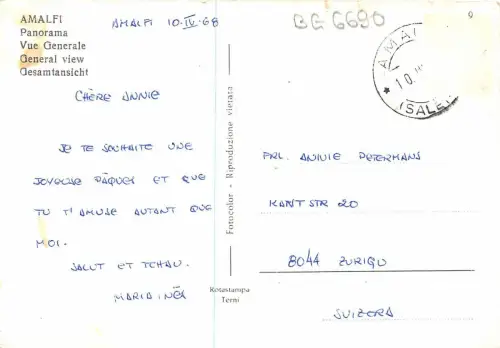 AMALFI
Panorama
Vue Generale
General view
Gesamtansicht
AMALFI 10.IV.68
BG 6690
AMAL
10.
(SALE
CHÈRE ANNIE
JE TE SOUHAITE UNE
JOYEUSE PÂQUES ET QUE
TU T'AMUSE AUTANT QUE
MOI.
SALUT ET TCHAU.
MARIA INÊS
Fotocolor - Riproduzione vietata
Rotostampa
Terni
FRL. ANNIE PETERMANS
KANTSTR 20
8044 ZURIGO
SVIZERA